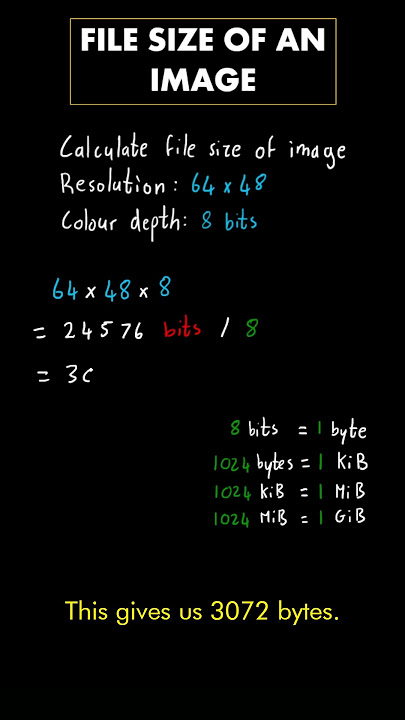 FILE SIZE OF AN
IMAGE
Calculate file size of image
Resolution: 64 x 48
Colour depth: 8 bits
64 x 48 x 8
= 24576 bits / 8
= 30
8 bits = 1 byte
1024 bytes = 1 KiB
1024 KiB = 1 MiB
1024 MiB = 1 GiB
This gives us 3072 bytes.